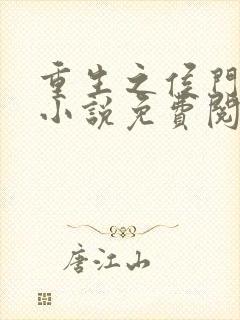 重生之侯門
小說免費閱
唐江山